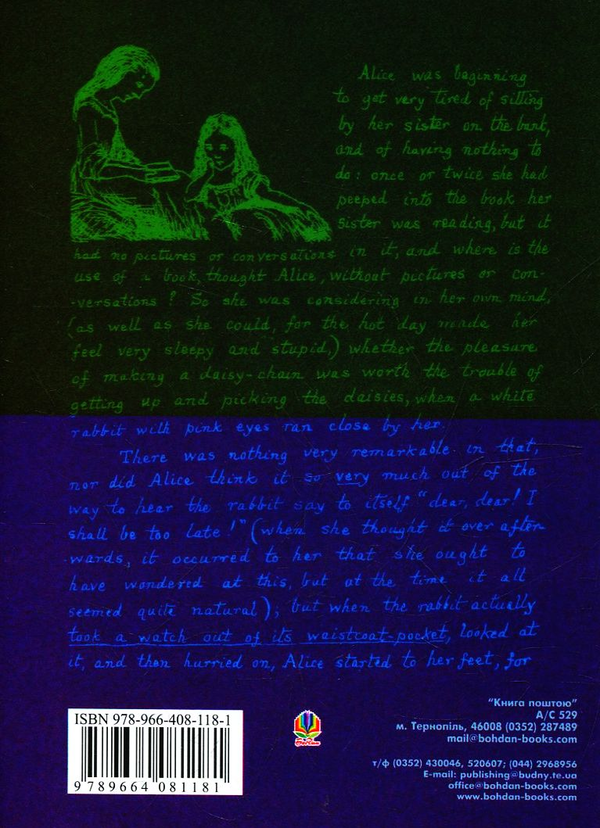 Alice was beginning
to get very tired of sitting
by her sister on the bank,
and of having nothing to
do: once or twice she had
peeped into the book her
sister was reading, but it
had no pictures or conversations in it, and where is the
use of a book, thought Alice, without pictures or con-
-versations? So she was considering in her own mind,
(as well as she could, for the hot day made her
feel very sleepy and stupid,) whether the pleasure
of making a daisy-chain was worth the trouble of
getting up and picking the daisies, when a white
rabbit with pink eyes ran close by her.
There was nothing very remarkable in that,
nor did Alice think it so very much out of the
way to hear the rabbit say to itself "dear, dear! I
shall be too late!" (when she thought it over after-
-wards, it occurred to her that she ought to
have wondered at this, but at the time it all
seemed quite natural); but when the rabbit actually
took a watch out of its waistcoat-pocket, looked at
it, and then hurried on, Alice started to her feet, for
ISBN 978-966-408-118-1
9 789664 081181
"Книга поштою"
А/С 529
м. Тернопіль, 46008 (0352) 287489
mail@bohdan-books.com
т/ф (0352) 430046, 520607; (044) 2968956
E-mail: publishing@budny.te.ua
office@bohdan-books.com
www.bohdan-books.com